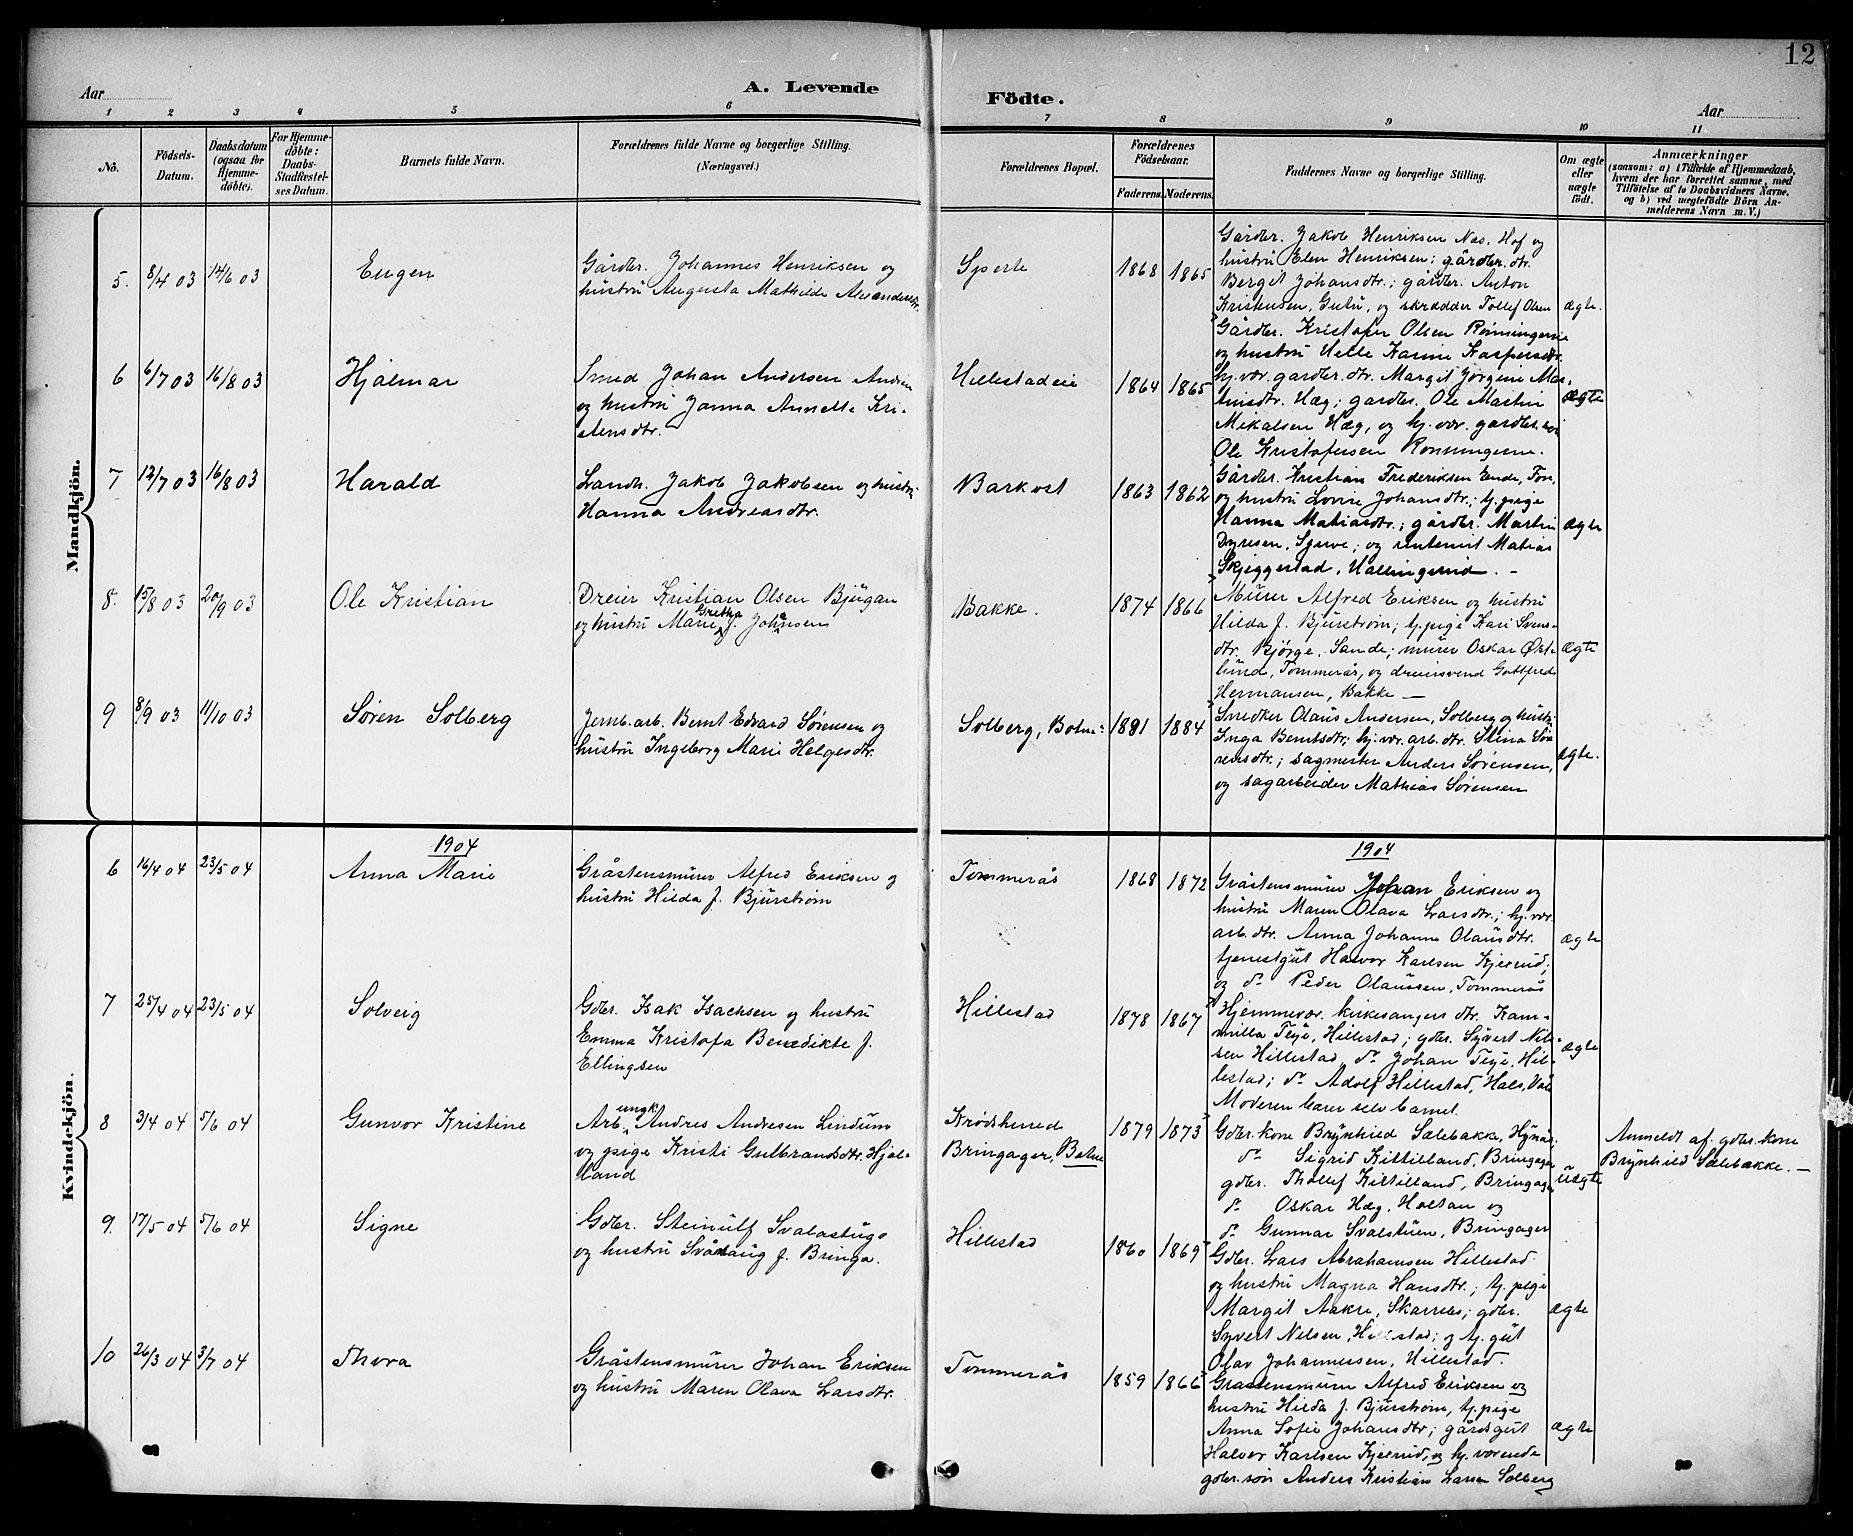 12
Aar
A. Levende
Födte.
Aar
1 2 3 4 5 6 7 8 9 10 11
No.
Födsels-
Datum.
Daabsdatum
(ogsaa for
Hjemme-
döbte).
For Hjemme-
döbte:
Daabs-
Stadfæstel-
ses Datum.
Barnets fulde Navn.
Forældrenes fulde Navne og borgerlige Stilling.
(Næringsvei.)
Forældrenes Bopæl.
Forældrenes
Födselsaar.
Faderens. Moderens.
Faddernes Navne og borgerlige Stilling.
Om ægte
eller
uægte
födt.
Anmærkninger
(saasom: a) i Tilfælde af Hjemmedaab,
hvem der har forrettet samme, med
Tilföielse af to Daabsvidners Navne,
og b) ved uægtefödte Börn An-
melderens Navn m. V.)
Mandkjön.
5. 8/4 03 14/6 03 Eugen
Gårdbr. Johannes Henriksen og
hustru Augusta Mathilde
Sperle 1868 1865
Gårdbr. Jakob Henriksen Næs, Hof og
hustru Elen Henriksen; gårdbr. dtr.
Bergit Johansdtr.; gårdbr. Anton
Kristensen, Gutu, og skrædder Tollef Olsen
ægte.
6 6/7 03 16/8 03 Hjalmar
Smed Johan Andersen
og hustru Janna Annette Kri-
stensdtr.
Hillestadeie 1864 1865
Gårdbr. Kristofer Olsen Rönningerne
og hustru Helle Karine Kaspersdtr.
hj. vær. gardbr. dtr. Margit Jörgine Mar-
tinsdtr. Hæg; gardbr. Ole Martin
Mikalsen Hæg, og hj. vær. gardbr. sön
Ole Kristofersen Rönningerne.
ægte
7 12/7 03 16/8 03 Harald
Landh. Jakob Jakobsen og hustru
Hanna Andreasdtr.
Barkost 1863 1862
Gårdbr. Kristian Frederiksen Ende, Fon,
og hustru Lovise Johansdtr.; tj. pige
Hanna Matiasdtr.; gårdbr. Martin
Dyresen, Sjueve; og rentenist Matias
Skjeggestad, Hallingsrud. -
ægte
8. 15/8 03 20/9 03 Ole Kristian
Dreier Kristian Olsen Bjürgan
Gretha
og hustru Marie f. Johnsen
Bakke. 1874 1866
Murer Alfred Eriksen og hustru
Hilda f. Bjurström; tj. pige Kari Svens-
dtr. Bjørge, Sande; murer Oskar Øst-
lund, Tommerås, og dreiersvend Gottfred
Hermansen, Bakke —
ægte
9 8/9 03 11/10 03 Søren Solberg
Jernb. arb. Bernt Edvard Sørensen og
hustru Ingeborg Marie Helgesdtr.
Solberg, Botne 1881 1884
Snedker Olaus Andersen, Solberg og hustru
Inga Berntsdtr; hj. vær. arb. dtr. Stina Sø-
rensdtr.; sagmester Anders Sørensen,
og sagarbeider Mathias Sørensen
ægte.
Kvindekjön.
1904
1904
6 16/4 04 23/5 04 Anna Marie
Gråstensmurer Alfred Eriksen og
hustru Hilda f. Bjurström
Tommerås 1868 1872
Gråstensmurer Johan Eriksen og
hustru Maren Olava Larsdtr.; hj. vær.
arb. dtr. Anna Johanne Olausdtr.
tjenestgut Halvor Karlsen Kjerrud,
og do Peder Olaussen, Tommerås
ægte
7 25/4 04 23/5 04 Solveig
Gdbr. Isak Isachsen og hustru
Emma Kristofa Benedikte f.
Ellingsen
Hillestad 1878 1867
Hjemmevær. kirkesangers dtr. Kam-
milla Teije, Hillestad; gdbr. Syvert Nil-
sen Hillestad, do Johan Teije, Hil-
lestad; do Adolf Hillestad, Hals, Våle
Moderen bærer selv barnet.
ægte
8 3/4 04 5/6 04 Gunvor Kristine
ungk.
Arb. Andres Andresen Lindum
og pige Kristi Gulbrandsdtr. Hjal-
land
Krødsherred
Bringager, Botne
1879 1873
Gdbr. kone Brynhild Sælebakke, Hynås.
do Sigrid Kittilland, Bringager
gdbr. Thollef Kittilland, Bringager
do Oskar Hæg, Holtan og
do Gunnar Svalstuen, Bringager
uægte
Anmeldt af gdbr. kone
Brynhild Sælebakke. —
9. 17/5 04 5/6 04 Signe
Gdbr. Steinulf Svalastugo
og hustru Svånaug f. Bringa.
Hillestad 1860 1869
Gdbr. Lars Abrahamsen Hillestad
og hustru Magna Hansdtr.; tj. pige
Margit Aakre, Skarrebs; gdbr.
Syvert Nelsen, Hillestad; og tj. gut
Olav Johannessen, Hillestad.
ægte
10 26/3 04 3/7 04 Thora
Gråstensmurer Johan Eriksen
og hustru Maren Olava Larsdtr.
Tommerås 1859 1866
Gråstensmurer Alfred Eriksen og
hustru Hilda f. Bjurström, tj. pige
Anna Sofie Johansdtr; gårdsgut
Halvor Karlsen Kjerrud, og hj. værende
gdbr. søn Anders Kristian Larsen Solberg
ægte